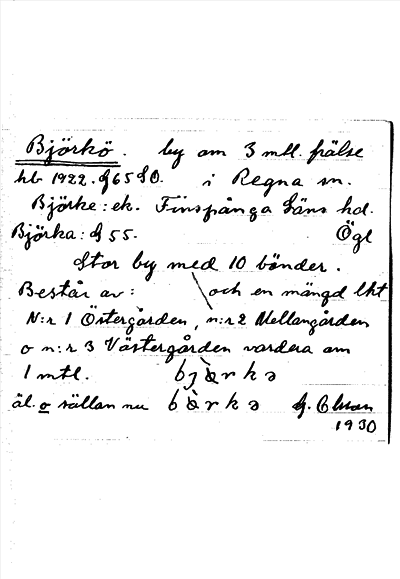 Björkö. by om 3 mtl. frälse
hb 1922. § 65 § 0. i Regna sn.
Björke: ek. Finspånga läns hd.
Björka: § 55. Ögl
Stor by med 10 bönder.
Består av: och en mängd lht
N:r 1 Östergården, n:r 2 Mellangården
o n:r 3 Västergården vardera om
1 mtl. bjɑ̀rkə
äl. o sällan nu bɑ̀rkə G. Olson
1930